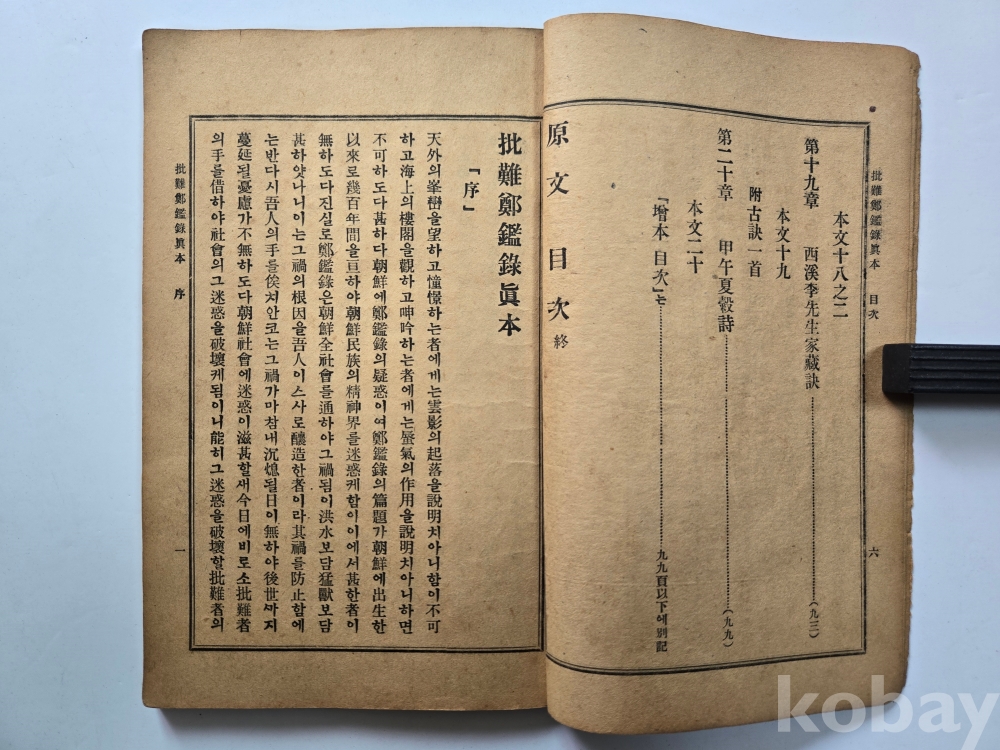 批難鄭鑑錄眞本 目次
六
本文十八之二
第十九章 西溪李先生家藏訣……(九三)
本文十九
附古訣一首
第二十章 甲午夏穀詩……(九九)
本文二十
「增本目次」는……九九頁以下에別記
原文目次 終
批難鄭鑑錄眞本
「序」
天外의峯巒을望하고憧憬하는者에게는雲影의起落을說明치아니함이不可
하고海上의樓閣을觀하고呻吟하는者에게는蜃氣의作用을說明치아니하면
不可하도다甚하다朝鮮에鄭鑑錄의疑惑이여鄭鑑錄의篇題가朝鮮에出生한
以來로幾百年間을亘하야朝鮮民族의精神界를迷惑케함이이에서甚한者이
無하도다진실로鄭鑑錄은朝鮮全社會를通하야그禍됨이洪水보담猛獸보담
甚하얏나니이는그禍의根因을吾人이스사로釀造한者이라其禍를防止함에
는반다시吾人의手를俟치안코는그禍가마참내沉熄될日이無하야後世까지
蔓延될憂慮가不無하도다朝鮮社會에迷惑이滋甚할새今日에비로소批難者
의手를借하야社會의그迷惑을破壞케됨이니能히그迷惑을破壞할批難者의
批難鄭鑑錄眞本 序
一
kobay